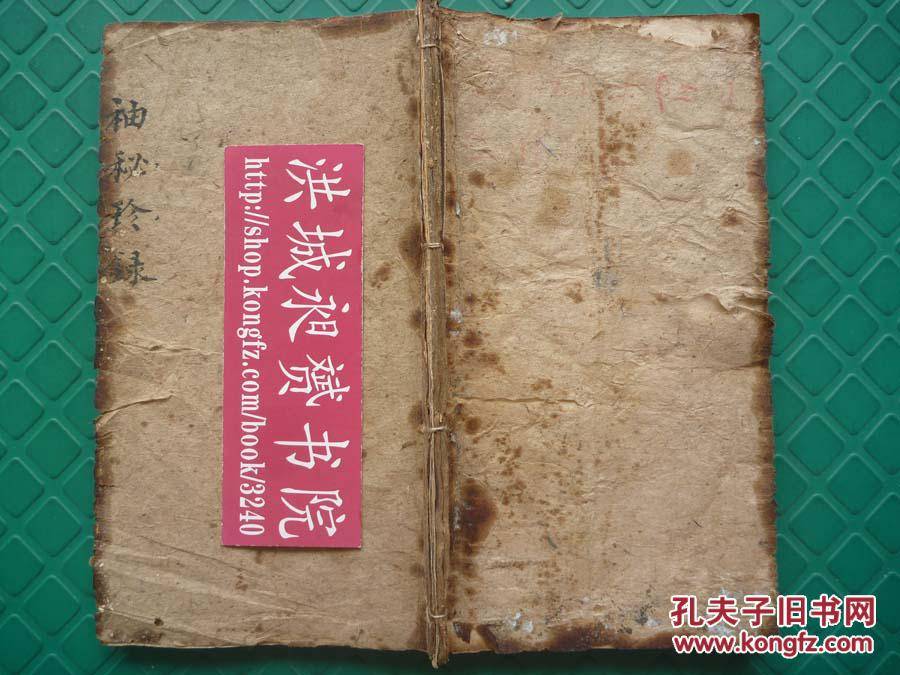 袖秘珍録
洪城昶赟书院
http://shop.kongfz.com/book/3240
孔夫子旧书网
www.kongfz.com